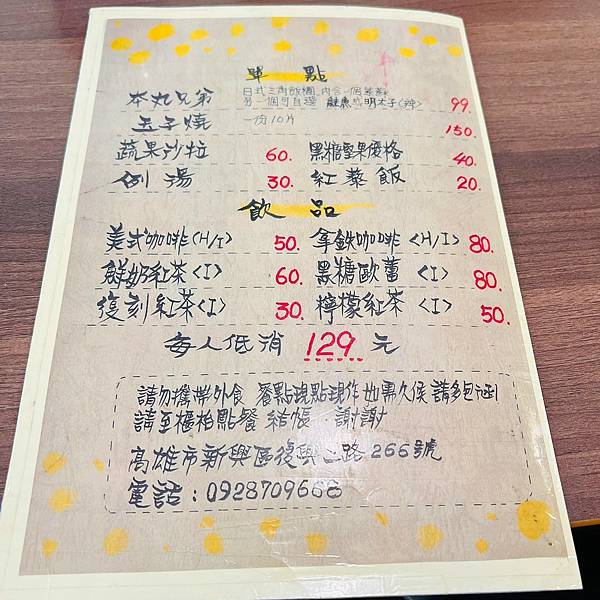 單 點
本丸兄弟 日式三角飯糰,內含一個紫蘇 另一個可自選 鮭魚或明太子(辣) 99.
玉子燒 一份10片 150.
蔬果沙拉 60. 黑糖堅果優格 40.
例湯 30. 紅藜飯 20.
飲 品
美式咖啡<H/I> 50. 拿鉄咖啡 <H/I> 80.
鮮奶紅茶<I> 60. 黑糖歐蕾 <I> 80.
復刻紅茶<I> 30. 檸檬紅茶 <I> 50.
每人低消 129 元
請勿攜帶外食 餐點現點現作 如需久侯 請多包涵
請至櫃枱點餐 結帳. 謝謝
高雄市新興區復興二路266號
電話:0928709668